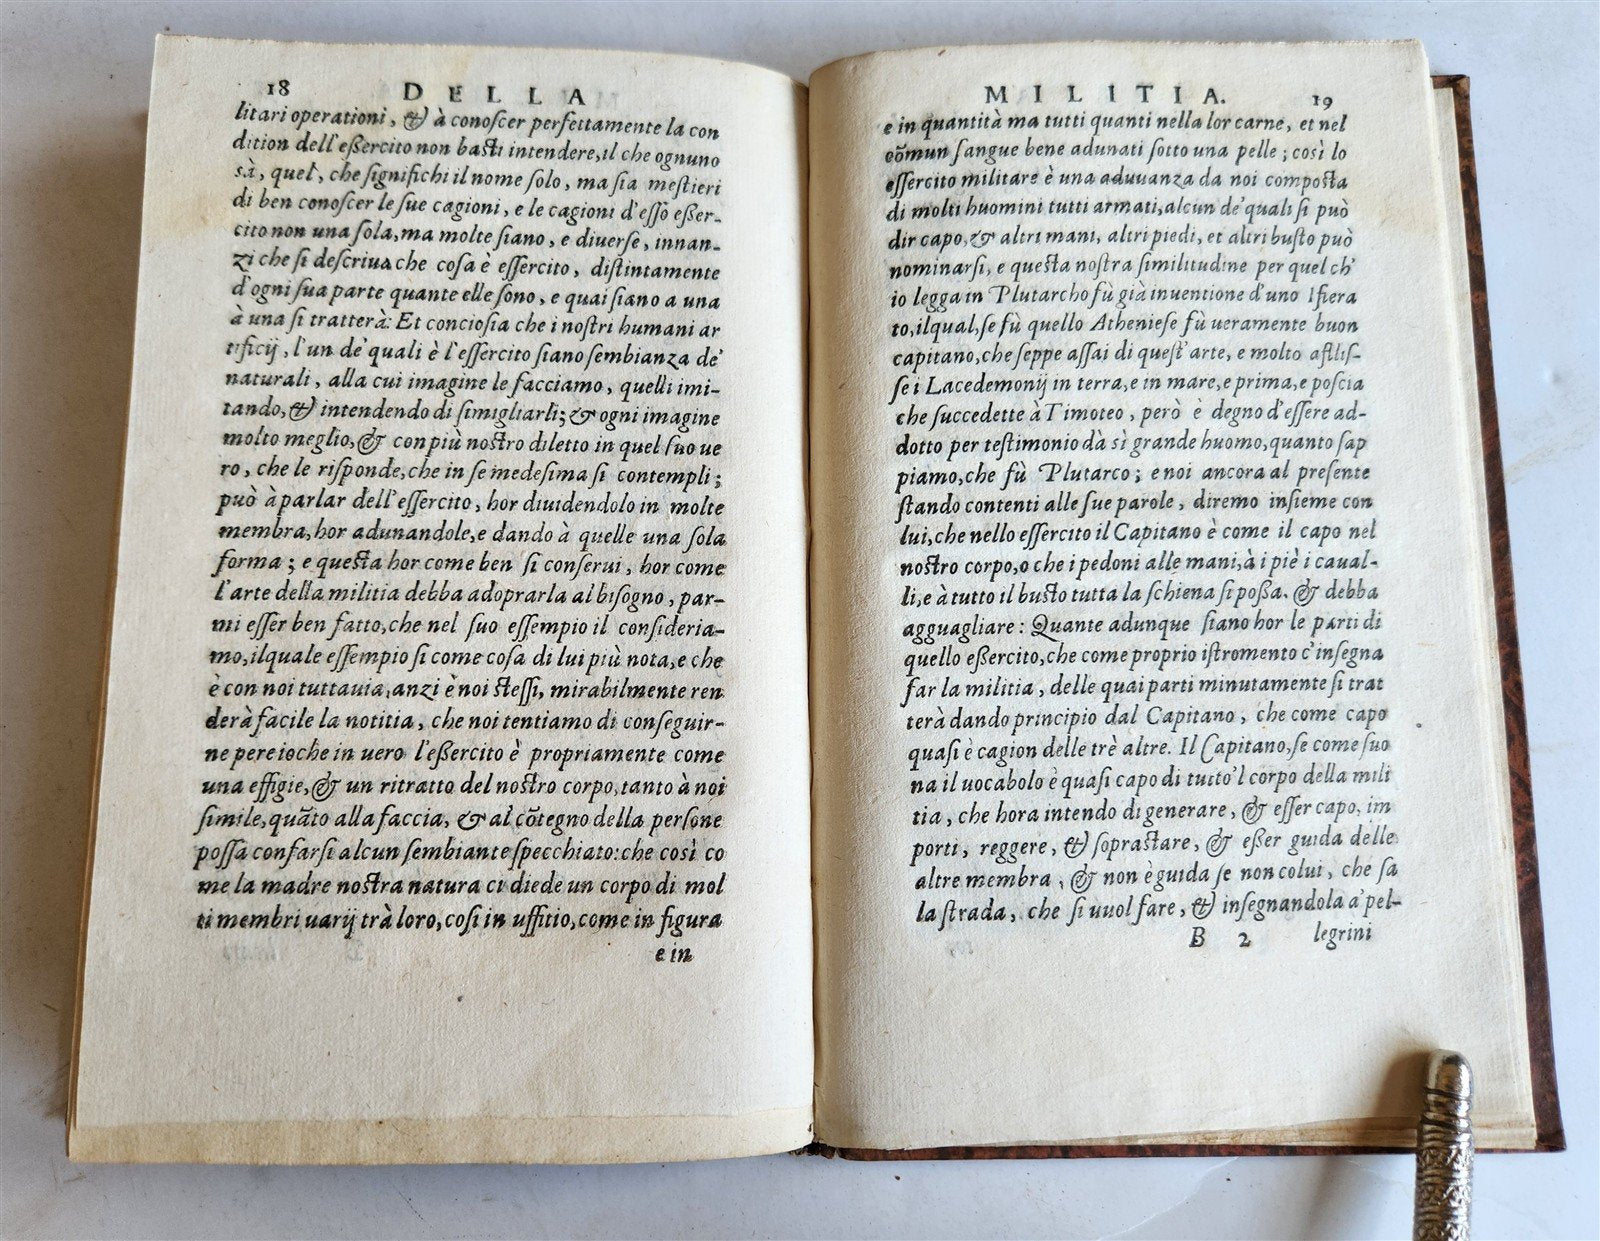 18 DELLA
litari operationi, & à conoſcer perfettamente la con
dition dell'eßercito non basti intendere, il che ognuno
sà, quel, che ſignifichi il nome ſolo, ma ſia mestieri
di ben conoſcer le ſue cagioni, e le cagioni d'eſſo eßer-
cito non una ſola, ma molte ſiano, e diuerſe, innan-
zi che ſi deſcriua che coſa è eſſercito, diſtintamente
d'ogni ſua parte quante elle ſono, e quai ſiano a una
à una ſi tratterà: Et concioſia che i noſtri humani ar
tificij, l'un de' quali è l'eſſercito ſiano ſembianza de'
naturali, alla cui imagine le facciamo, quelli imi-
tando, & intendendo di ſimigliarli; & ogni imagine
molto meglio, & con più noſtro diletto in quel ſuo ue
ro, che le riſponde, che in ſe medeſima ſi contempli;
può à parlar dell'eſſercito, hor diuidendolo in molte
membra, hor adunandole, e dando à quelle una ſola
forma; e questa hor come ben ſi conſerui, hor come
l'arte della militia debba adoprarla al biſogno, par-
mi eſſer ben fatto, che nel ſuo eſſempio il conſideria-
mo, ilquale eſſempio ſi come coſa di lui più nota, e che
è con noi tuttauia, anzi è noi steſſi, mirabilmente ren
derà facile la notitia, che noi tentiamo di conſeguir-
ne percioche in uero l'eßercito è propriamente come
una effigie, & un ritratto del nostro corpo, tanto à noi
ſimile, quãto alla faccia, & al cõtegno della perſone
poſſa confarſi alcun ſembiante ſpecchiato: che così co
me la madre nostra natura ci diede un corpo di mol
ti membri uarij trà loro, coſi in uffitio, come in figura
e in
MILITIA. 19
e in quantità ma tutti quanti nella lor carne, et nel
cõmun ſangue bene adunati ſotto una pelle; così lo
eſſercito militare è una aduuanza da noi composta
di molti huomini tutti armati, alcun de' quali ſi può
dir capo, & altri mani, altri piedi, et altri busto può
nominarſi, e questa noſtra ſimilitudine per quel ch'
io legga in Plutarcho fù già inuentione d'uno Ifiera
to, ilqual, ſe fù quello Athenieſe fù ueramente buon
capitano, che ſeppe aſſai di quest'arte, e molto afliſ-
ſe i Lacedemonij in terra, e in mare, e prima, e poſcia
che ſuccedette à Timoteo, però è degno d'eſſere ad-
dotto per testimonio dà sì grande huomo, quanto ſap
piamo, che fù Plutarco; e noi ancora al preſente
ſtando contenti alle ſue parole, diremo inſieme con
lui, che nello eſſercito il Capitano è come il capo nel
nostro corpo, o che i pedoni alle mani, à i piè i caual-
li, e à tutto il busto tutta la ſchiena ſi poßa. & debba
agguagliare: Quante adunque ſiano hor le parti di
quello eßercito, che come proprio iſtromento c'inſegna
far la militia, delle quai parti minutamente ſi trat
terà dando principio dal Capitano, che come capo
quaſi è cagion delle trè altre. Il Capitano, ſe come ſuo
na il uocabolo è quaſi capo di tutto'l corpo della mili
tia, che hora intendo di generare, & eſſer capo, im
porti, reggere, & ſoprastare, & eßer guida delle
altre membra, & non è guida ſe non colui, che ſa
la ſtrada, che ſi uuol fare, & inſegnandola a' pel-
B 2 legrini